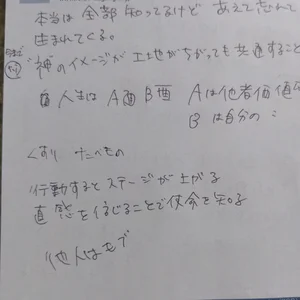 本当は全部知ってるけど あえて忘れて
生まれてくる。
神のイメージが土地がちがっても共通すること
人生は A面 B面 Aは他者価値
Bは自分の 〃
くすり たべもの
行動するとステージが上がる
直感を信じることで使命を知る
他人はモブ